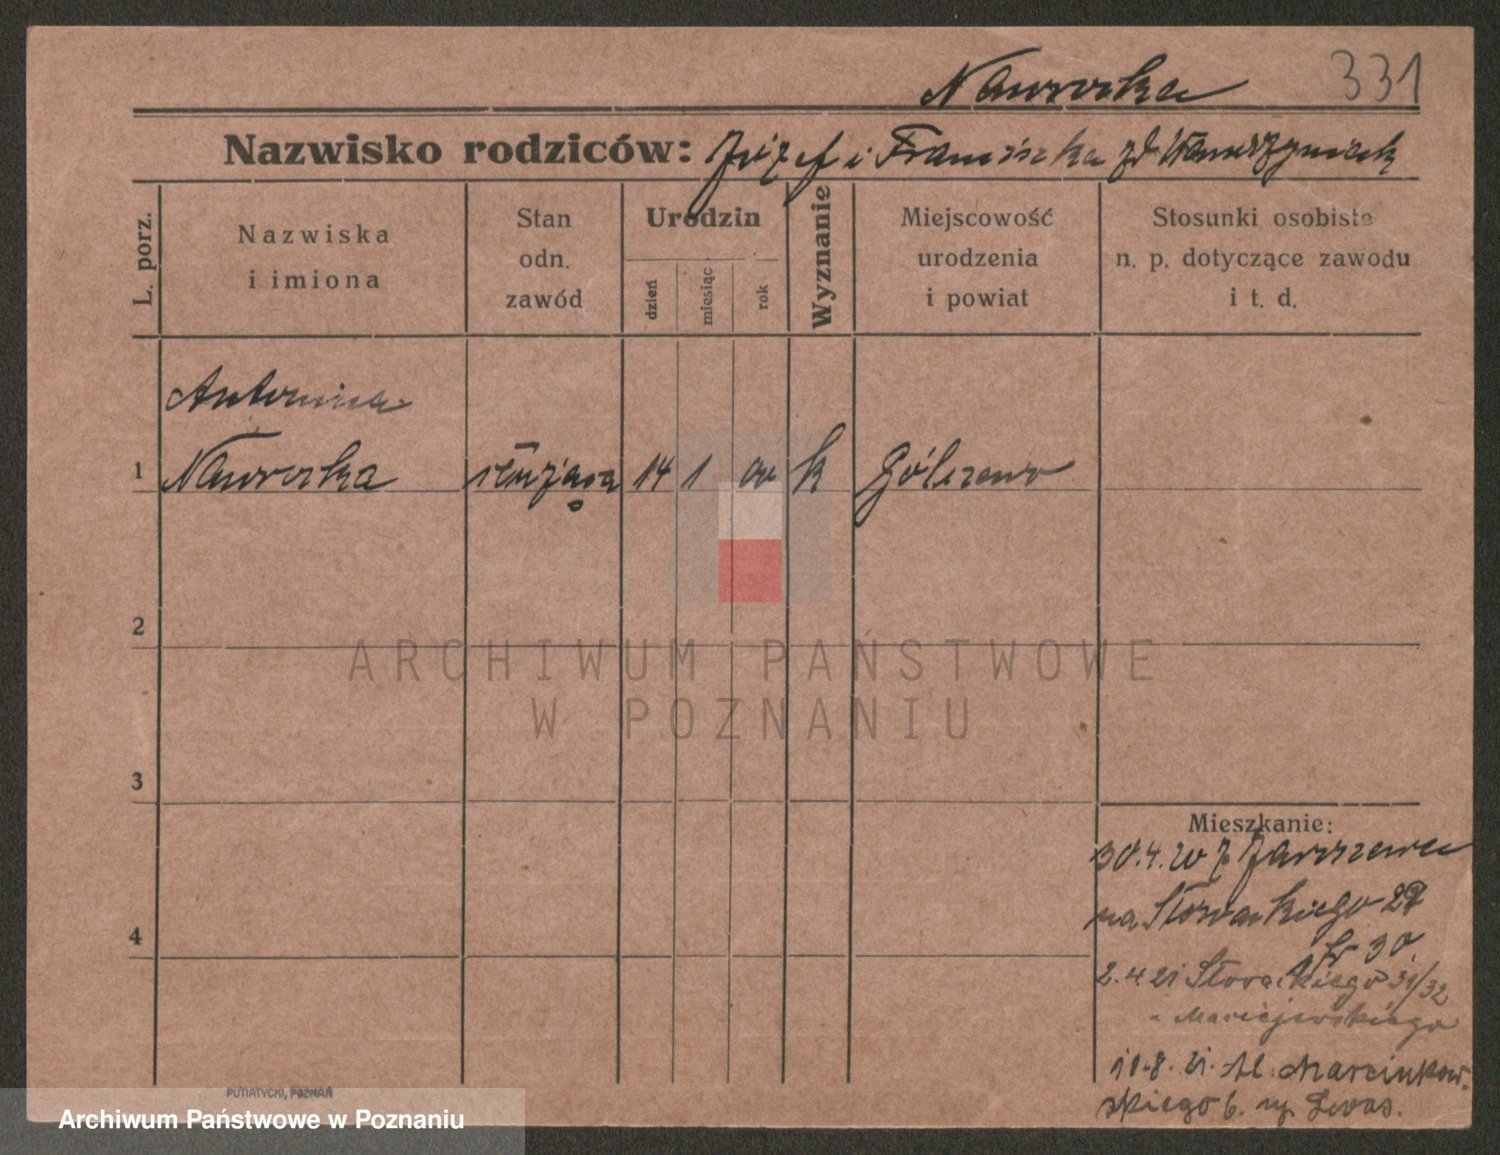 Nawrocka 331
Nazwisko rodziców: Józef i Franciszka zd
L. porz.
Nazwiska
i imiona
Stan
odn.
zawód
Urodzin
dzień
miesiąc
rok
Wyznanie
Miejscowość
urodzenia
i powiat
Stosunki osobiste
n. p. dotyczące zawodu
i t. d.
Antonina
1 Nawrocka służąca 14 1 00 k
2
ARCHIWUM PAŃSTWOWE
W POZNANIU
3
Mieszkanie:
30.4.20 z
na Słowackiego
4
30
2.4.21 Słowackiego 31/32
Maciejewskiego
10.8.21. Al. Marcinkow-
skiego 6.
PUTIATYCKI, POZNAŃ
Archiwum Państwowe w Poznaniu